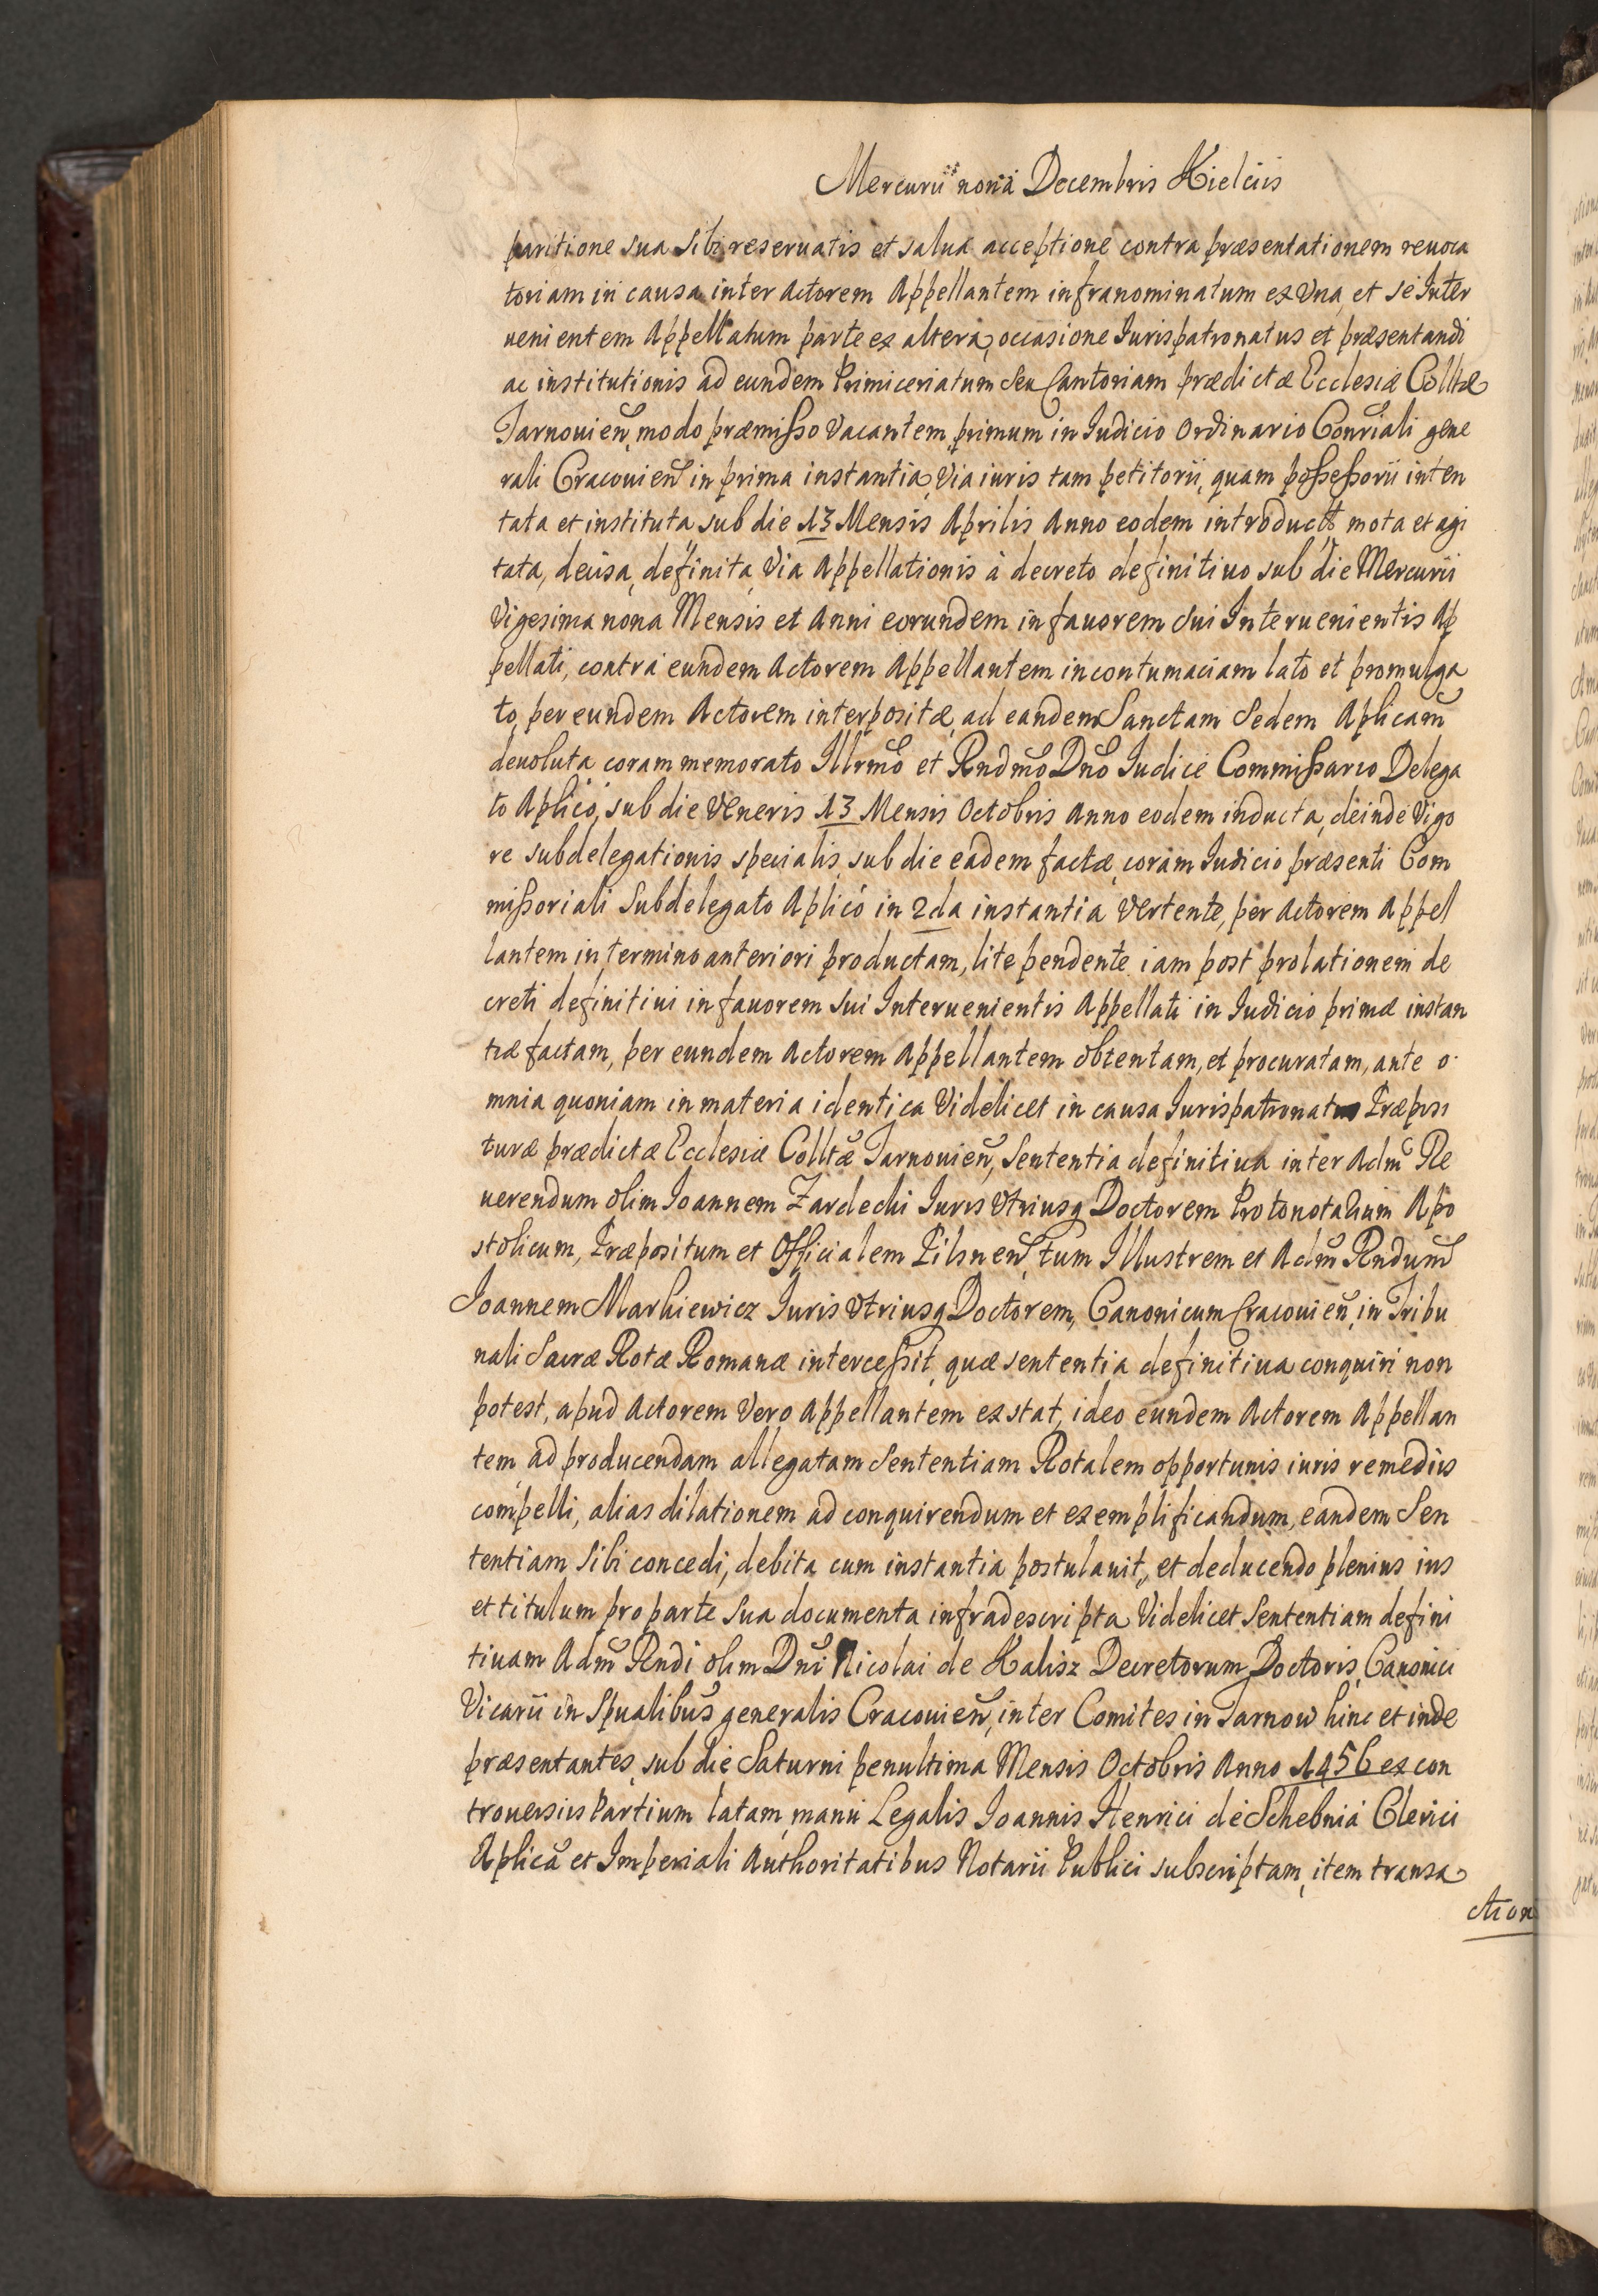 Mercurii nona Decembris Kielciis
paritione sua sibi reseruatis et salua acceptione contra præsentationem reuoca
toriam in causa inter Actorem Appellantem infranominatum ex Vna, et se Inter
uenientem Appellatum parte ex altera, occasione Iurispatronatus et præsentandi
ac institutionis ad eundem Primiceriatum seu Cantoriam prædictæ Ecclesiæ Colltæ
Tarnouień, modo præmisso Vacantem, primum in Iudicio Ordinario Consriali gene
rali Cracouień in prima instantia, Via iuris tam petitorii, quam possessorii inten
tata et instituta, sub die 13 Mensis Aprilis Anno eodem introducta, mota et agi
tata, decisa, definita, Via Appellationis à decreto definitiuo sub die Mercurii
Vigesima nona Mensis et Anni eorundem in fauorem sui Interuenientis Ap
pellati, contra eundem Actorem Appellantem in contumaciam lato et promulga
to, per eundem Actorem interpositæ, ad eandem Sanctam Sedem Aplicam̃
deuoluta, coram memorato Illrmõ et Rndmõ Dño Iudice Commissario Delega
to Aplico, sub die Veneris 13 Mensis Octobris Anno eodem inducta, deinde Vigo
re subdelegationis specialis, sub die eadem factæ, coram Iudicio præsenti Com
missoriali Subdelegato Aplico in 2da instantia Vertente, per Actorem Appel
lantem in termino anteriori productam, lite pendente iam post prolationem de
creti definitiui in fauorem sui Interuenientis Appellati in Iudicio primæ instan
tiæ factam, per eundem Actorem Appellantem obtentam, et procuratam, ante o
mnia quoniam in materia identica Videlicet in causa Iurispatronatus Præposi
turæ prædictæ Ecclesiæ Colltæ Tarnouień, Sententia definitiua inter Adm̃ Re
uerendum olim Ioannem Zardecki Iuris Vtriusq Doctorem Protonotarium Apo
stolicum, Præpositum et Officialem Pilsneń, tum Illustrem et Adm̃ Rndum̃
Ioannem Markiewicz Iuris Vtriusq Doctorem, Canonicum Cracouień, in Tribu
nali Sacræ Rotæ Romanæ intercessit, quæ sententia definitiua conquiri non
potest, apud Actorem Vero Appellantem exstat, ideo eundem Actorem Appellan
tem, ad producendam allegatam Sententiam Rotalem opportunis iuris remediis
compelli, alias dilationem ad conquirendum et exemplificandum, eandem Sen
tentiam sibi concedi, debita cum instantia postulauit, et deducendo plenius ius
et titulum pro parte sua documenta infradescripta Videlicet Sententiam defini
tiuam Adm̃ Rndi olim Dñi Nicolai de Kalisz Decretorum Doctoris, Canonici
Vicarii in Spualibus generalis Cracouień, inter Comites in Tarnow hinc et inde
præsentantes, sub die Saturni penultima Mensis Octobris Anno 1456 ex con
trouersiis Partium latam, manu Legalis Ioannis Henrici de Schebnia Clerici
Aplicã et Imperiali Authoritatibus Notarii Publici subscriptam, item transa
ction